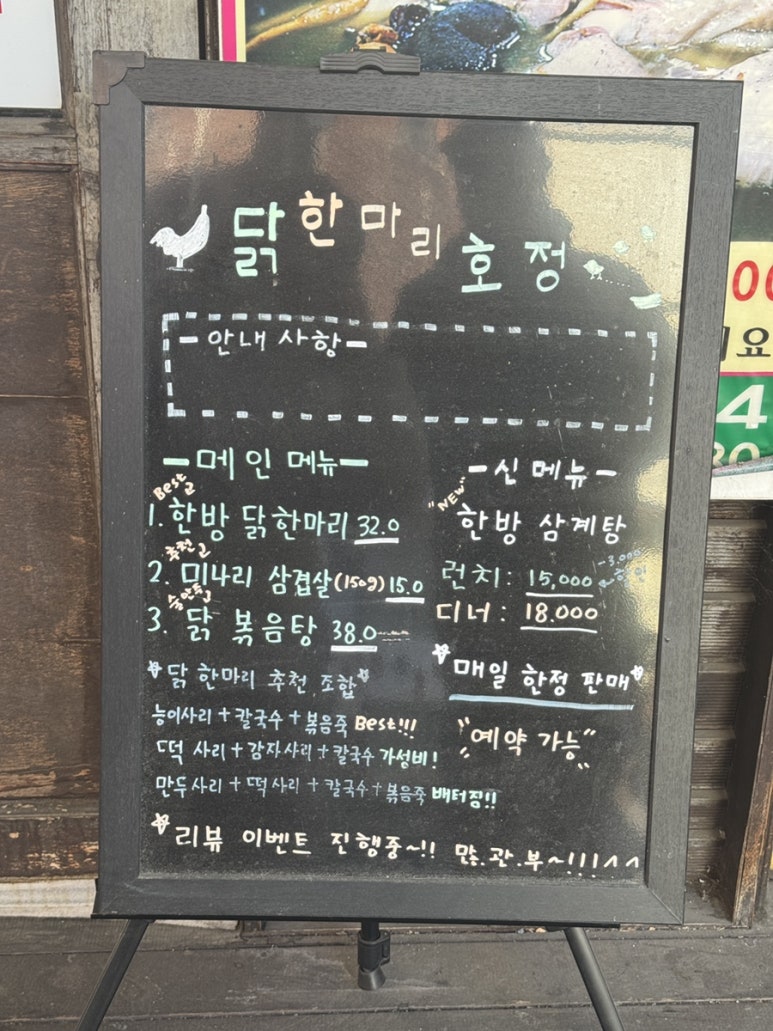 닭한마리 호정
-안내사항-
-메인 메뉴-
Best
1. 한방 닭한마리 32.0
추천
2. 미나리 삼겹살(150g) 15.0
3. 닭 볶음탕 38.0
☆닭 한마리 추천 조합☆
능이사리+칼국수+볶음죽 Best!!!
떡 사리+감자사리+칼국수 가성비!
만두사리+떡사리+칼국수+볶음죽 배터짐!!
-신메뉴-
"NEW"
한방 삼계탕
-3,000
런치: 15,000
디너: 18.000
☆매일 한정 판매☆
"예약 가능"
☆리뷰 이벤트 진행중~!! 많.관.부~!!!^^
0
요
4
30